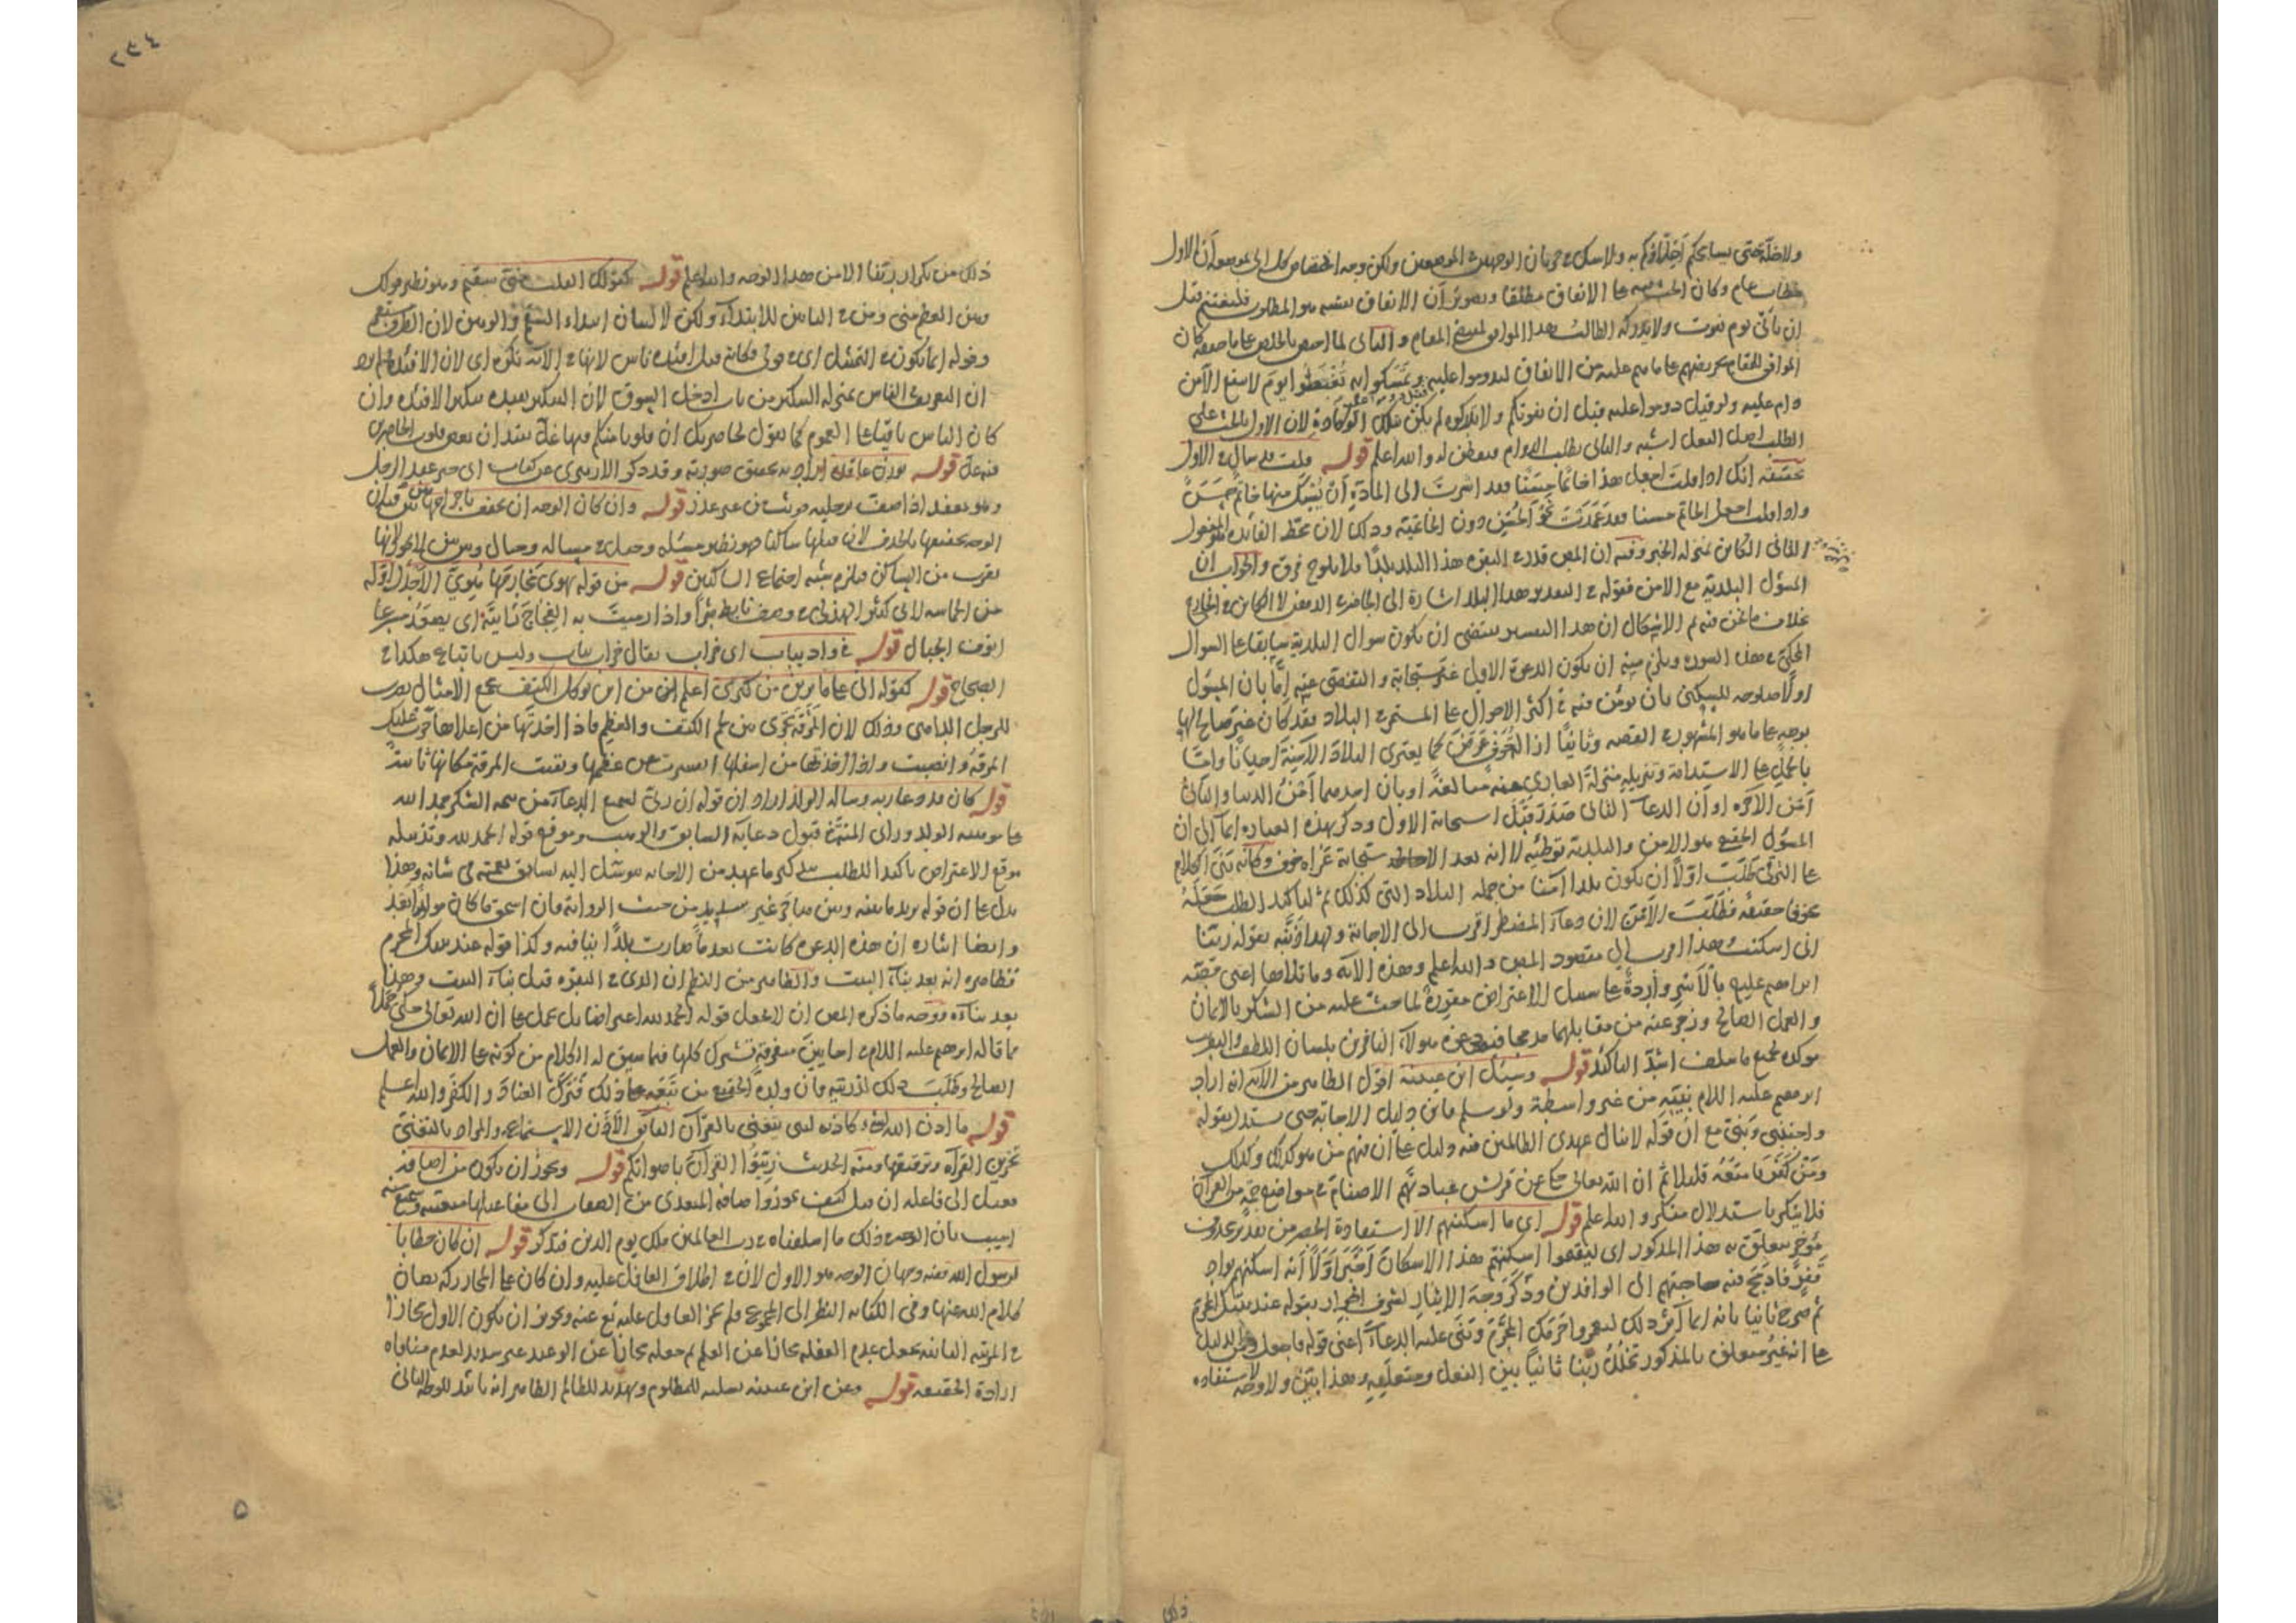 ولا خلة حتى يسامحكم اخلاؤكم به ولا شك في جريان الوجهين في الموضعين ولكن وجه اختصاص كل الى بموضعه ان الاول
خطاب عام وكان الحث فيه على الانفاق مطلقا وتصوير ان الانفاق نفسه هو المطلوب فليغتنم قبل
ان يأتي يوم يفوت ولا يدركه الطالب هذا الموافق لمقتضى المقام والثاني لما اختص بالخلص
الموافق للمقام تحريضهم على ما هم عليه من الانفاق ليدوموا عليه
دام عليه ولو قيل دوموا عليه قبل ان يفوتكم ولا تدركوه لم يكن بتلك الوكادة لان الاول بالحث على
الطلب اصل الفعل اشبه والثاني بطلب الدوام فتفطن له والله اعلم قوله قلت قد سأل في الاول
تحقيقه انك اذا قلت اجعل هذا خاتما حسنا فقد اشرت الى المادة ان يسبك منها خاتم حسن
واذا قلت اجعل الخاتم حسنا فقد عمدت نحو الحسن دون الخاتمية وذلك لان محط الفائدة هو المفعول
الثاني الكائن بمنزلة الخبر وفيه ان المص قدر في البقرة هذا البلد بلدا فلا يلوح فرق والجواب ان
المسؤل البلدية مع الامن فقوله في التقدير هذا البلد اشارة الى الحاضر في الذهن لا الكائن في الخارج
بخلاف ما نحن فيه ثم الاشكال ان هذا التفسير يقتضي ان يكون سؤال البلدية سابقا على السؤال
المحكي في هذه السورة ويلزم منه ان يكون الدعوة الاولى غير مستجابة والتفصي عنه اما بان المسؤل
اولا صلوحه للسكنى بان يؤمن فيه في اكثر الاحوال على المستمر في البلاد فقد كان غير صالح لها
بوجه على ما هو المشهور في القصة وثانيا ازالة خوف عرض كما يعتري البلاد الآمنة احيانا واما
بالحمل على الاستدامة وتنزيله منزلة العاري عنه مبالغة او بان احدهما امن الدنيا والثاني
امن الآخرة او ان الدعاء الثاني صدر قبل استجابة الاول وذكر بهذه العبارة ايماء الى ان
المسؤل الحقيقي هو الامن والبلدية توطئة لا انه بعد الاستجابة عراه خوف وكانه بنى الكلام
على الترقي فطلب اولا ان يكون بلدا آمنا من جملة البلاد التي كذلك ثم لتاكيد الطلب جعله
مخوفا حقيقة فطلب الامن لان دعاء المضطر اقرب الى الاجابة ولهذا ذيله بقوله ربنا
اني اسكنت هذا اقرب الى مقصود المص والله اعلم وهذه الآية وما تلاها اعني قصة
ابراهيم عليه بالاسر واردة على سبيل الاعتراض مقررة لما حث عليه من الشكر بالايمان
والعمل الصالح وزجر عنه من مقابلهما مدمجا فيه دعوة هؤلاء النافرين بلسان اللطف والتقريب
موكدة لجميع ما سلف اشد التاكيد قوله وسئل ابن عيينة اقول الظاهر من الآية انه اراد
ابرهيم عليه السلام بنيه من غير واسطة ولو سلم فاين دليل الاجابة حتى يستدل بقوله
واجنبني وبني مع ان قوله لا ينال عهدي الظالمين فيه دليل على ان فيهم من هو كذلك وكذلك
ومن كفر فامتعه قليلا ثم ان الله تعالى حكى عن قريش عبادتهم الاصنام في مواضع جمة من القرآن
فلا يتكبر باستدلال مفكر والله اعلم قوله اي ما اسكنتهم الا استفادة الحصر من تقدير محذوف
مؤخر يتعلق به هذا المذكور اي ليقيموا اسكنتهم هذا الاسكان اخبر اولا انه اسكنهم بواد
قفر فادمج فيه حاجتهم الى الوافدين وذكر وجه الايثار لشرف الجوار بقوله عند بيتك المحرم
ثم صرح ثانيا بانه انما آثر ذلك ليعمروا حرمك المحرم وبنى عليه الدعاء اعني قوله فاجعل والدليل
على انه غير متعلق بالمذكور تخلل ربنا ثانيا بين الفعل ومتعلقه وهذا بين ولا وجه لاستفادة
ذلك
٢٣٤
ذلك من تكرار ربنا الا من هذا الوجه والله اعلم قوله كقولك القلب مني سقيم وهو نظير قولك
وهن العظم مني ومن في الناس للابتداء ولكن
وقوله انما يكون في التمثيل اي في قولي فكانه قيل افئدة ناس لانها في الآية نكرة اي لان الافئدة
ان التعريف في الناس بمنزلة التنكير من باب ادخل السوق لان التنكير يفيده تنكير الافئدة وان
كان الناس باقيا على العموم كما تقول لحاضريك ان قلوبا منكم فيها غل تريد ان بعض قلوب الحاضرين
فيه غل قوله بوزن عاقلة
قوله وان كان الوجه ان تخفف باخراجها بين بين
الوجه تخفيفها بالحذف لان قبلها ساكنا فهو نظير مسئلة
تقرب من الساكن فيلزم شبه اجتماع الساكنين قوله من قوله يهوي مخارمها هوي الاجدل اوله
من الحماسة لابي كبير الهذلي واذا رميت به الفجاج رأيته اي يصعد مسرعا
انوف الجبال قوله في واد يباب اي خراب يقال خراب يباب وليس باتباع هكذا في
الصحاح قوله كقوله اني على ما ترين من كبري اعلم من اين توكل الكتف مجمع الامثال يضرب
للرجل الداهي وذلك لان المرقة تجري بين لحم الكتف والعظم فاذا اخذتها من اعلاها جرت عليك
المرقة وانصبت واذا اخذتها من اسفلها انقشرت عن عظمها وبقيت المرقة مكانها ثابتة
قوله كان قد دعا ربه وسأله الولد اراد ان قوله ان ربي لسميع الدعاء من تتمة الشكر حمد الله
على موهبة الولد ورأى المنة في قبول دعائه السابق
موقع الاعتراض تاكيدا للطلب بتذكير ما عهد من الاجابة يتوسل اليه بسابق نعمته في شانه وهذا
يدل على ان قوله غير سديد من حيث الرواية فان اسحق ما كان مولودا بعد
وايضا اشارة ان هذه الدعوة كانت بعدما صارت بلدا ينافيه وكذا قوله عند بيتك المحرم
فظاهره انه بعد بناء البيت والظاهر من النظم ان الذي في البقرة قبل بناء البيت وهذا
بعد بنائه ووجه ما ذكره المص ان لا يجعل قوله الحمد لله اعتراضا بل يحمل على ان الله تعالى حكى جملا
مما قاله ابرهيم عليه السلام في احايين متفرقة تشترك كلها فيما سيق له الكلام من كونه على الايمان والعمل
الصالح وطلب ذلك لذريته وان ولده الحقيقي من تبعه على ذلك فترك العناد والكفر والله اعلم
قوله ما اذن الله لشيء كاذنه لنبي يتغنى بالقرآن الفائق الاذن الاستماع والمراد بالتغني
تحزين القراءة وترقيقها ومنه الحديث زينوا القرآن باصواتكم قوله ويجوز ان يكون من اضافة
فعيل الى فاعله ان قيل كيف جوزوا اضافة المتعدي من الصفات الى فاعلها
اجيب بان الوجه في ذلك ما اسلفناه في رب العالمين ملك يوم الدين فتذكر قوله ان كان خطابا
لرسول الله ففيه وجهان الوجه هو الاول لان في اطلاق الغافل عليه وان كان على المجاز ركة يصان
كلام الله عنها وفي الكناية النظر الى المجموع ويجوز ان يكون الاول مجازا
في المرتبة الثانية بجعل عدم الغفلة مجازا عن العلم ثم جعله مجازا عن الوعيد غير سديد لعدم منافاة
ارادة الحقيقة قوله وعن ابن عيينة تسلية للمظلوم وتهديد للظالم الظاهر انه تاييد للوجه الثاني